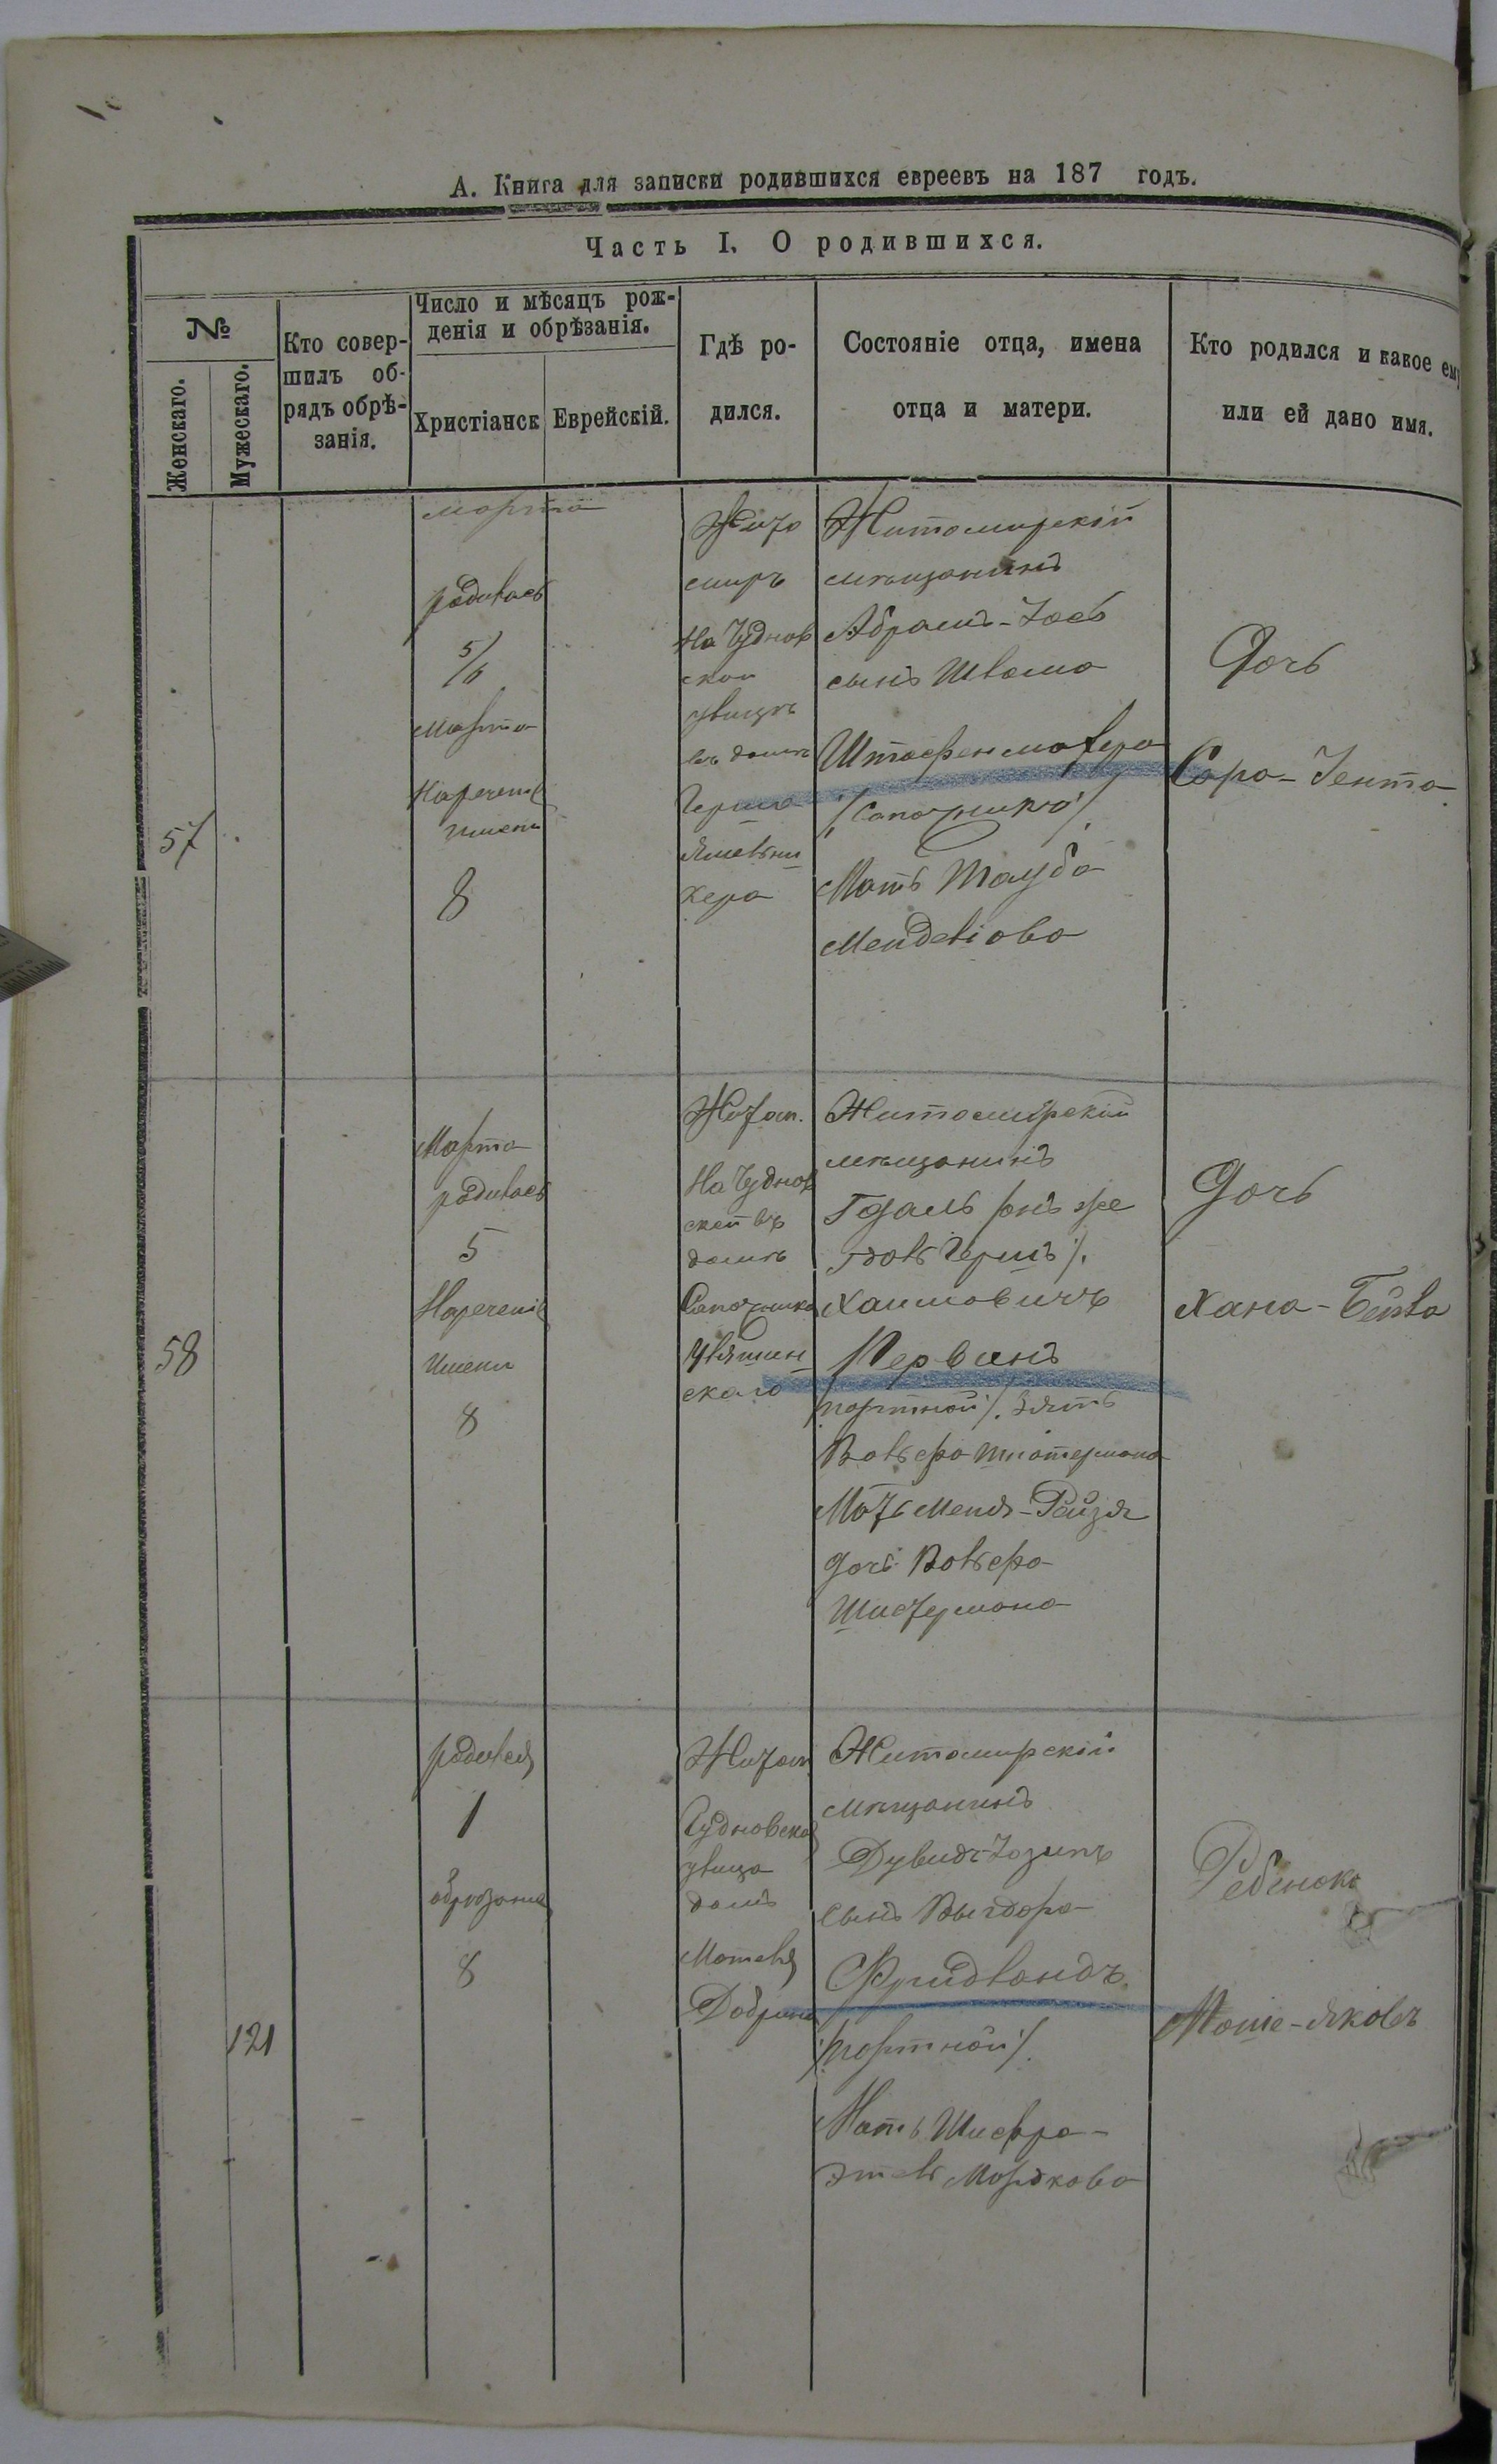 А. Книга для записки родившихся евреевъ на 187 годъ.
Часть I. О родившихся.
№
Женскаго.
Мужескаго.
Кто совер-
шилъ об-
рядъ обрѣ-
занія.
Число и мѣсяцъ рож-
денія и обрѣзанія.
Христіанск
Еврейскій.
Гдѣ ро-
дился.
Состояніе отца, имена
отца и матери.
Кто родился и какое ему
или ей дано имя.
57
марта
родилась
5/6
Марта
Наречение
имени
8
Жито
миръ
На Чуднов
ской
улицѣ
въ домѣ
Герша
кера
Житомирскій
мѣщанинъ
Абрамъ-Іось
сынъ Шлема
/Сапожникъ/
Мать Тауба
Менделіова
Дочь
Сара-Іента
58
Марта
родилась
5
Наречение
имени
8
Житом.
На Чуднов
ской въ
домѣ
Сапожника
скаго
Житомирскій
мѣщанинъ
Гдаль онъ же
Гдаль Гершъ/.
Хаимовичъ
портной/. Зять
Вольфа
Мать Меня-Рейзя
дочь Вольфа
Шистермана
Дочь
Хана-Бейла
121
родился
1
обрѣзание
8
Житом
Чудновская
улица
домъ
Мотеля
Житомирскій
мѣщанинъ
Дувидъ-Іозипъ
сынъ Выгдора
Фридландъ.
/портной/.
Мать Шифра-
Этль Мордкова
Ребенокъ
Моше-Яковъ